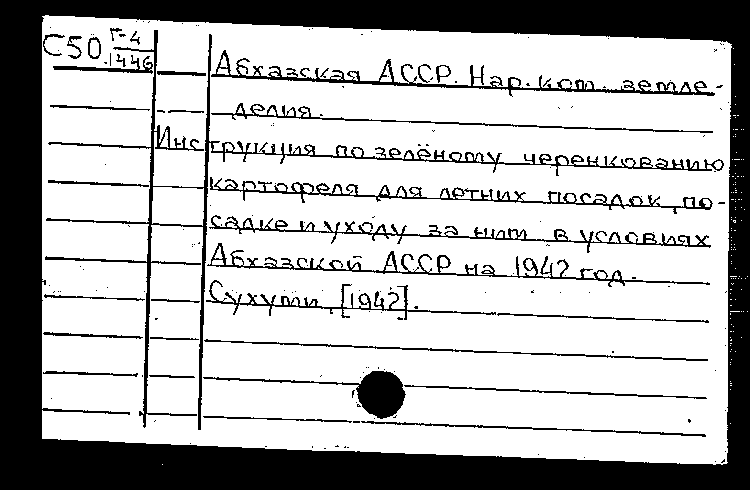 С50 Г-4
1446
Абхазская АССР. Нар. ком. земле-
делия.
Инструкция по зелёному черенкованию
картофеля для летних посадок, по-
садке и уходу за ним в условиях
Абхазской АССР на 1942 год.
Сухуми, [1942].